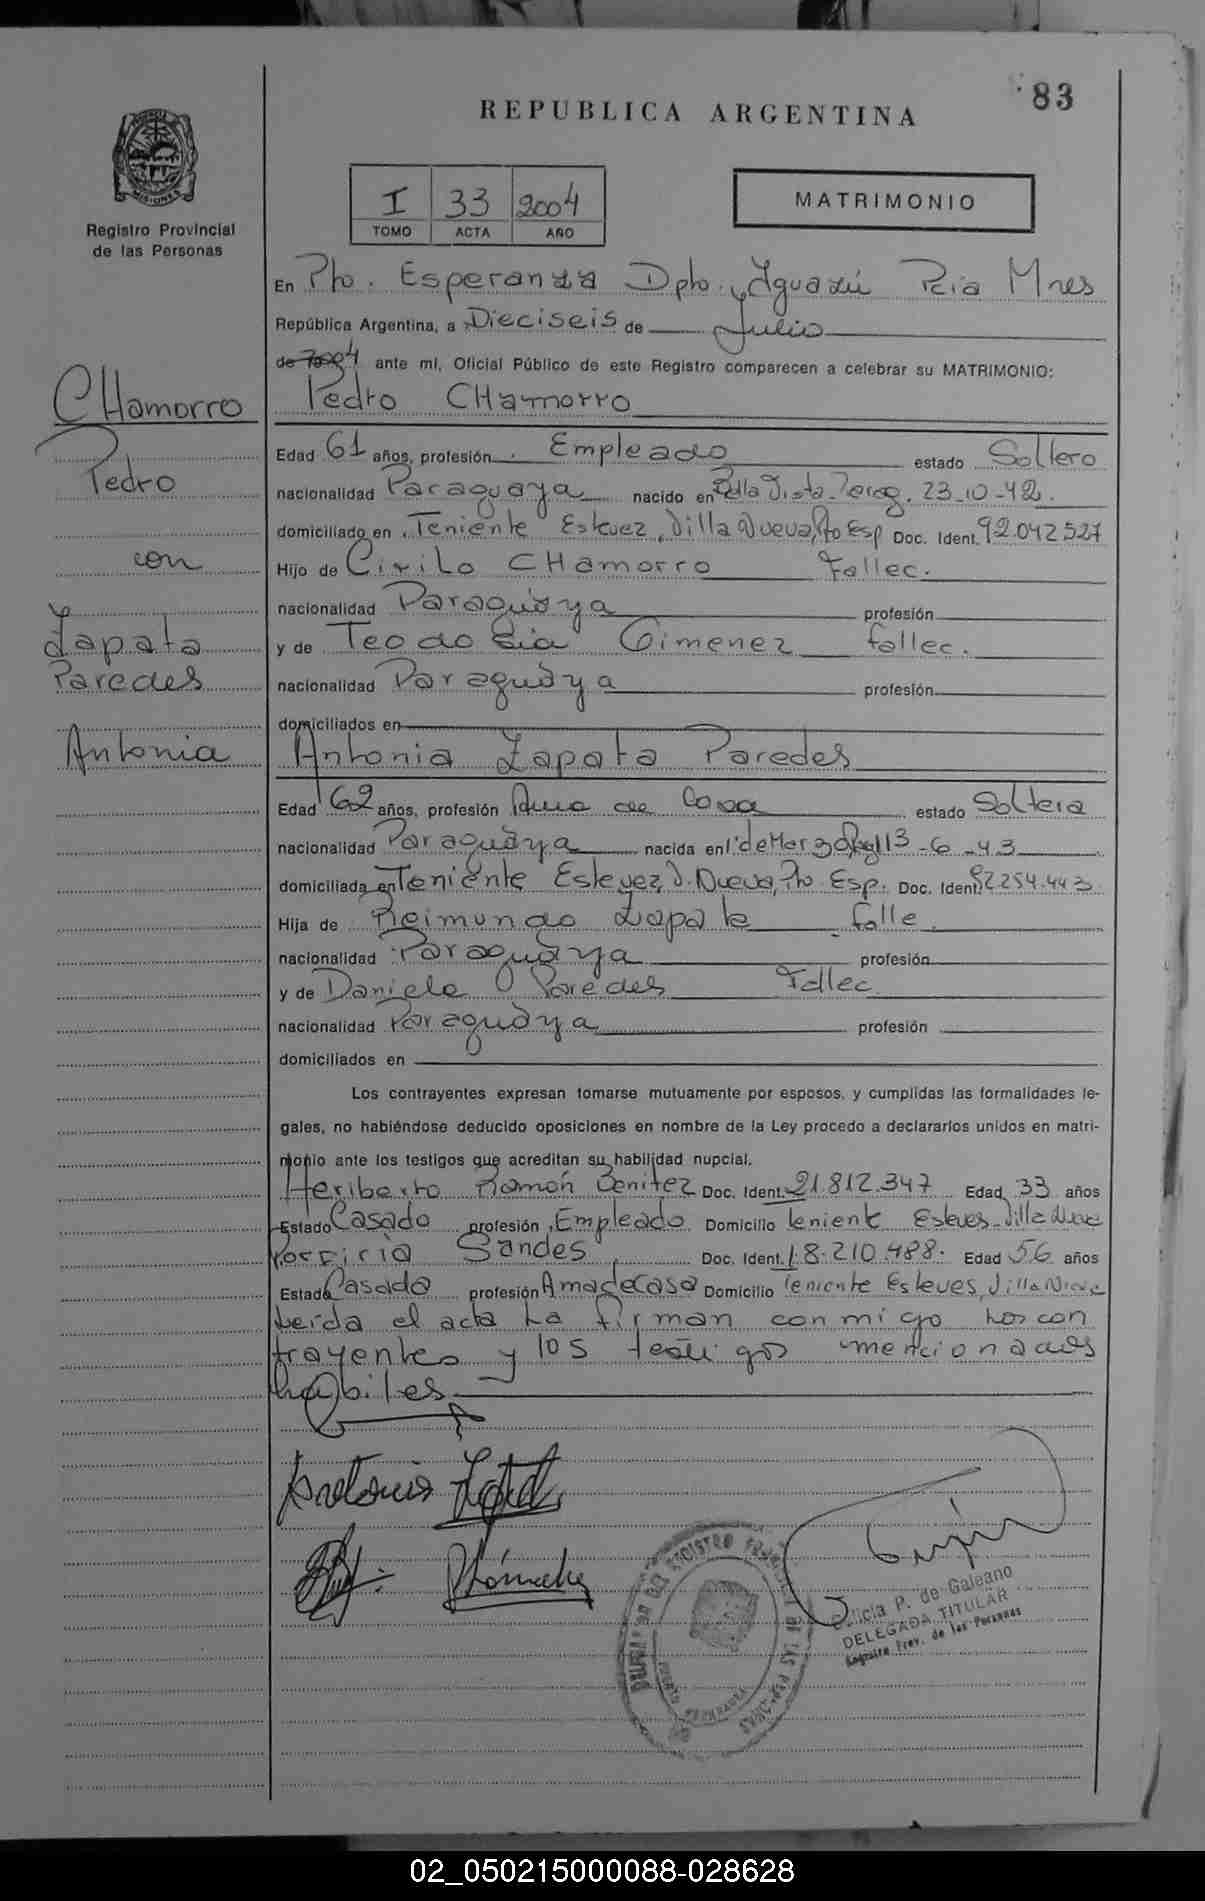 83
REPUBLICA ARGENTINA
I 33 2004
TOMO ACTA AÑO
MATRIMONIO
Registro Provincial
de las Personas
En Pto. Esperanza Dpto. Iguazú Pcia Mnes
República Argentina, a Dieciseis de Julio
de 2004 ante mí, Oficial Público de este Registro comparecen a celebrar su MATRIMONIO:
CHamorro
Pedro
con
Zapata
Paredes
Antonia
Pedro CHamorro
Edad 61 años, profesión Empleado estado Soltero
nacionalidad Paraguaya nacido en Bella Vista Parag. 23-10-42
domiciliado en Teniente Estevez, Villa Nueva, Pto Esp Doc. Ident. 92.042.527
Hijo de Cirilo CHamorro Fallec.
nacionalidad Paraguaya profesión
y de Teodosia Gimenez fallec.
nacionalidad Paraguaya profesión
domiciliados en
Antonia Zapata Paredes
Edad 62 años, profesión Ama de Casa estado Soltera
nacionalidad Paraguaya nacida en 1º de Marzo 13-6-43
domiciliada en Teniente Estevez, V. Nueva, Pto. Esp. Doc. Ident. 92.254.443
Hija de Reimundo Zapata falle.
nacionalidad Paraguaya profesión
y de Daniela Paredes Fallec.
nacionalidad Paraguaya profesión
domiciliados en
Los contrayentes expresan tomarse mutuamente por esposos, y cumplidas las formalidades le-
gales, no habiéndose deducido oposiciones en nombre de la Ley procedo a declararlos unidos en matri-
monio ante los testigos que acreditan su habilidad nupcial.
Heriberto Ramón Benitez Doc. Ident. 21.812.347 Edad 33 años
Estado Casado profesión Empleado Domicilio teniente Esteves Villa Nueva
Porfiria Sandes Doc. Ident. 18.210.488. Edad 56 años
Estado Casada profesión Ama de Casa Domicilio Teniente Esteves, Villa Nueva
Leida el acta La firman conmigo Los con
trayentes y los testigos mencionados
habiles
Antonia
REGISTRO DE LAS PERSONAS
PUERTO ESPERANZA
P. de Galeano
DELEGADA TITULAR
Registro Prov. de las Personas
02_050215000088-028628